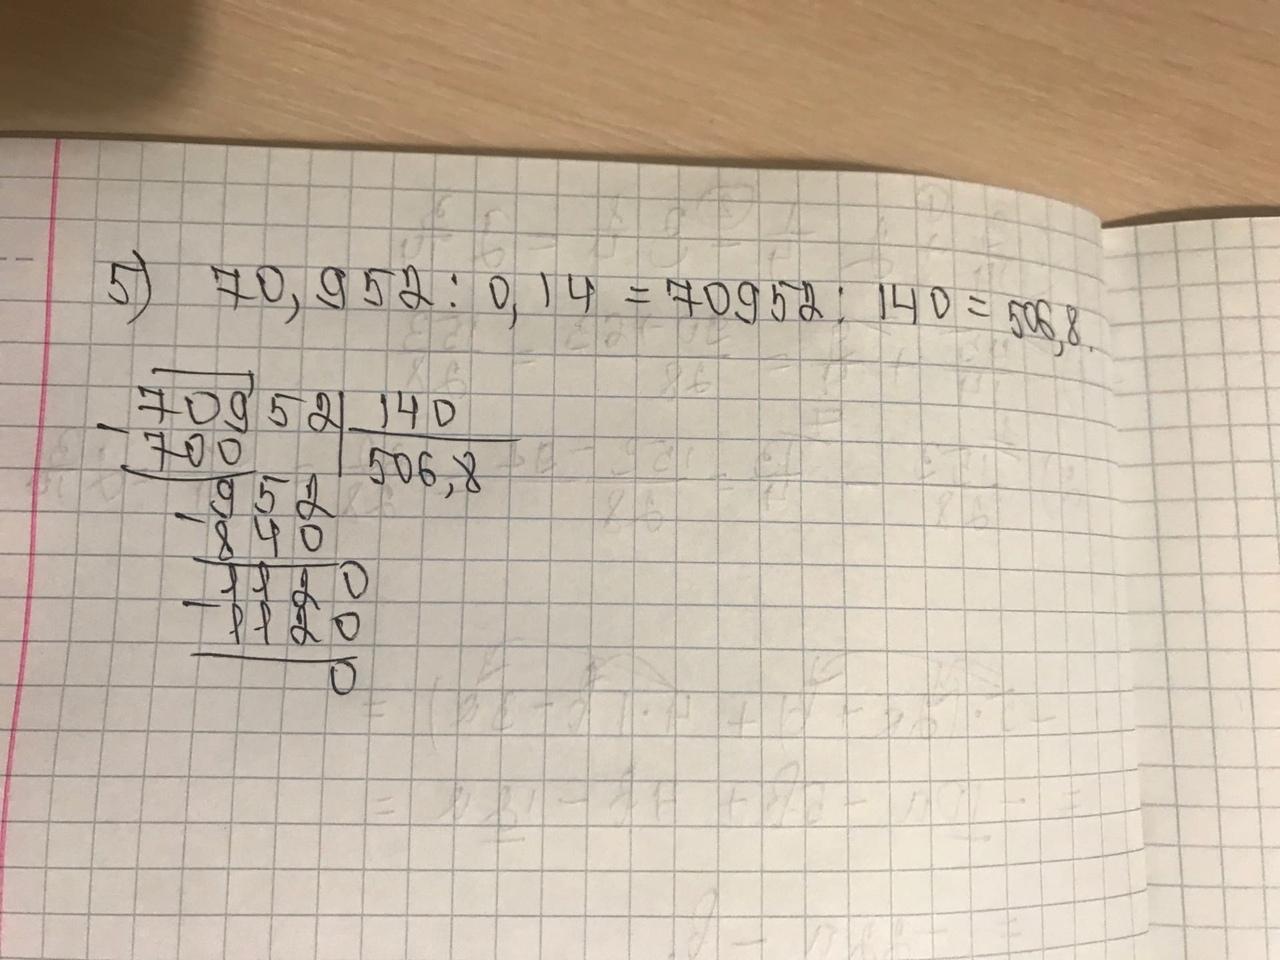 5) 70,952 : 0,14 = 70952 : 140 = 506,8.
70952 140
- 700 506,8
952
- 840
1120
- 1120
0